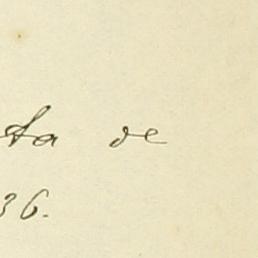 ta de
36.